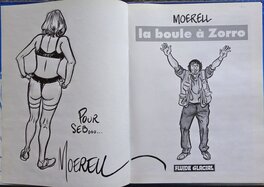 POUR
SEB.....
MOERELL
MOERELL
la boule à Zorro
FLUIDE GLACIAL